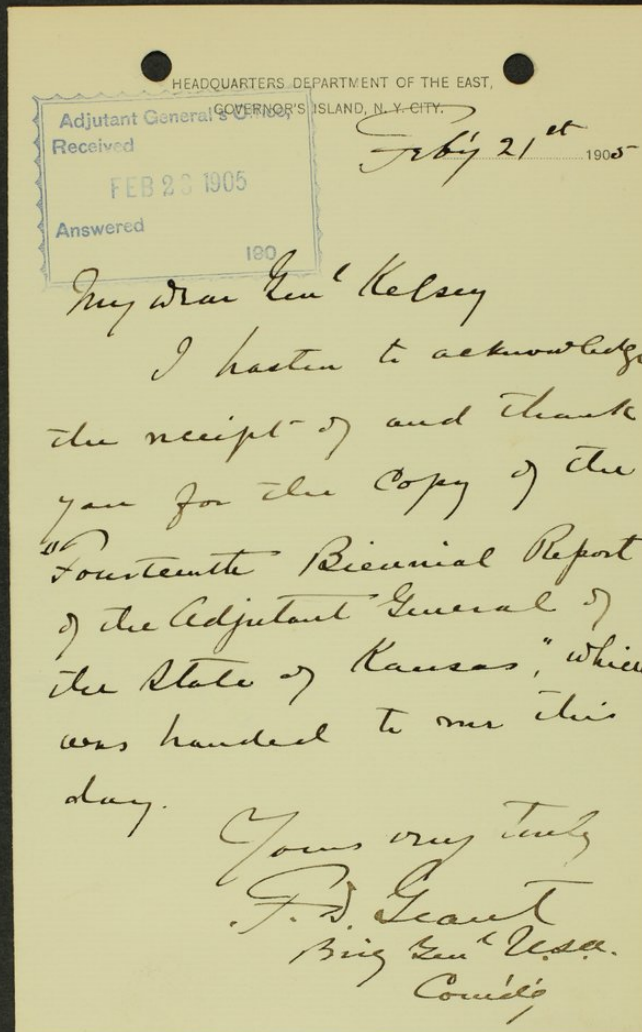 HEADQUARTERS DEPARTMENT OF THE EAST,
GOVERNOR'S ISLAND, N. Y. CITY.
Adjutant General's Office,
Received
FEB 26 1905
Answered
190
Feb'y 21st 1905
My dear Genl Kelsey
I hasten to acknowledge
the receipt of and thank
you for the Copy of the
"Fourteenth Biennial Report
of the Adjutant General of
the State of Kansas", which
was handed to me this
day.
Yours very truly
F. D. Grant
Brig Genl U.S.A.
Comd'g